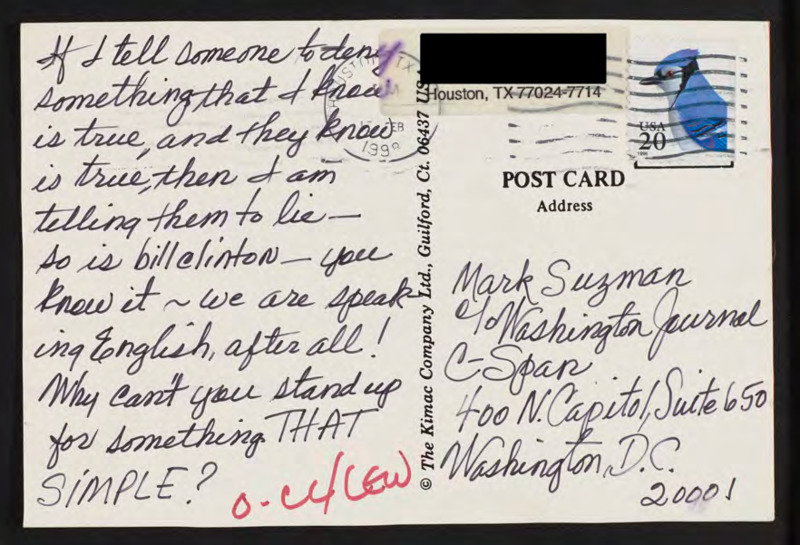 If I tell someone to deny
something that I know
is true, and they know
is true, then I am
telling them to lie—
so is bill clinton — you
know it ~ we are speak-
ing English, after all!
Why can't you stand up
for something THAT
SIMPLE?
HOUSTON, TX
FEB
1998
Houston, TX 77024-7714
USA
20
POST CARD
Address
© The Kimac Company Ltd., Guilford, Ct. 06437 US
Mark Suzman
c/o Washington Journal
C-Span
400 N. Capitol, Suite 650
Washington, D.C.
20001